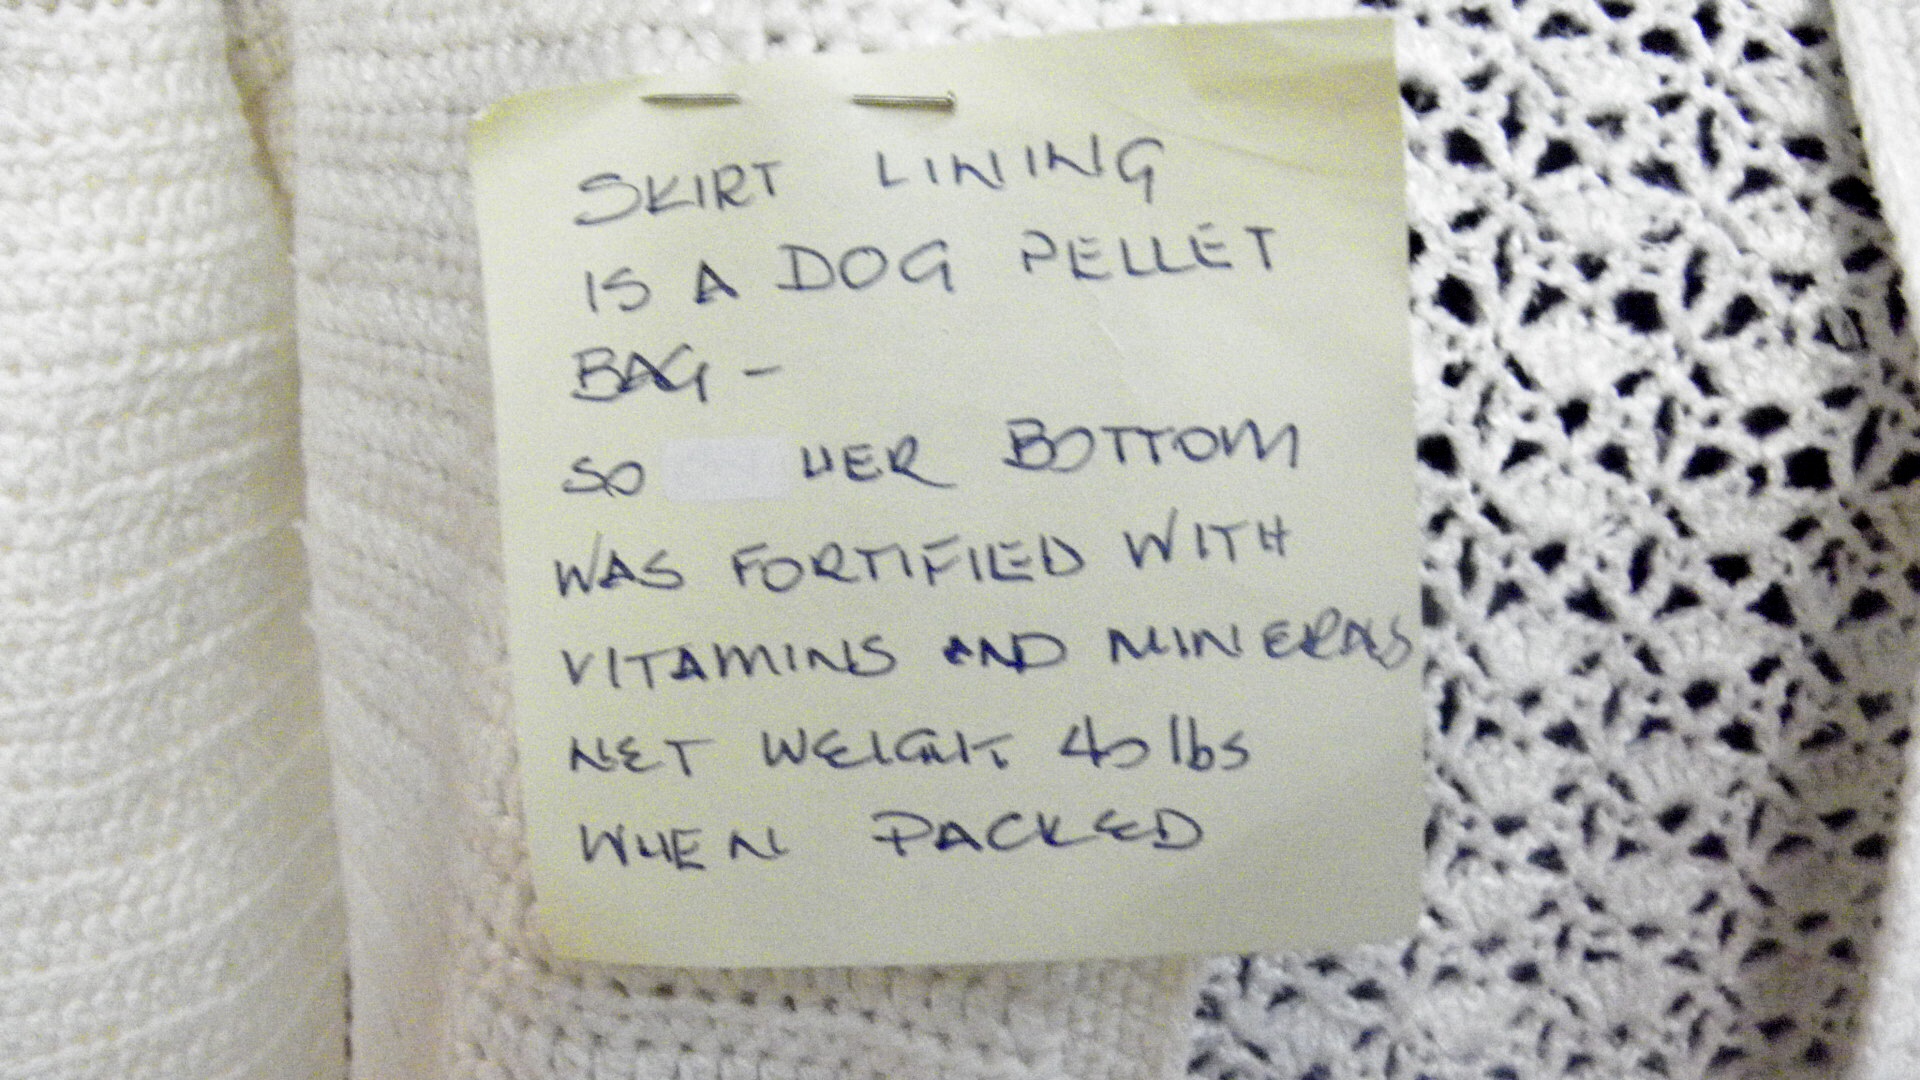 SKIRT LINING
IS A DOG PELLET
BAG -
SO HER BOTTOM
WAS FORTIFIED WITH
VITAMINS AND MINERALS
NET WEIGHT 40 lbs
WHEN PACKED